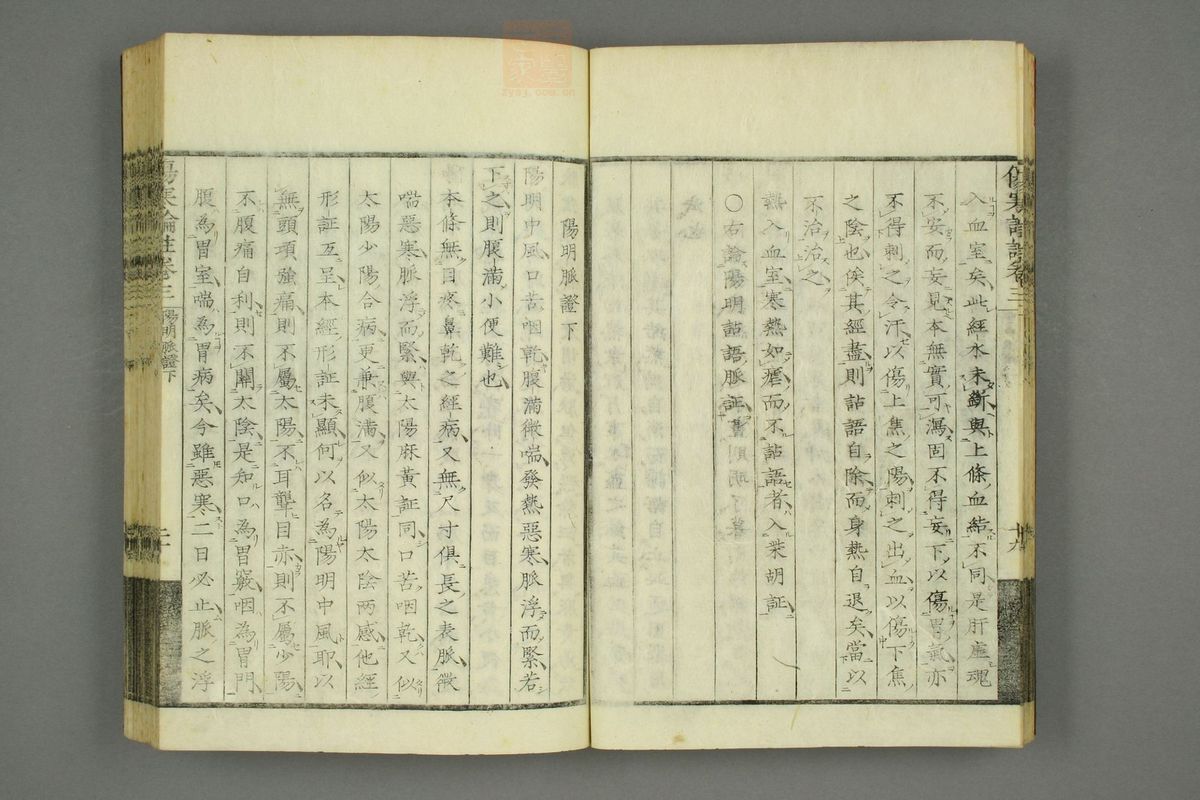 入血室矣此經水未斷與上條血結不同是肝虛魂
不安而妄見本無實可瀉固不得妄下以傷胃氣亦
不得刺之令汗以傷上焦之陽刺之出血以傷下焦
之陰也俟其經盡則詀語自除而身熱自退矣當以
不治治之
熱入血室寒熱如瘧而不詀語者入柴胡証
〇右論陽明詀語脈証
陽明脈證下
陽明中風口苦咽乾腹滿微喘發熱惡寒脈浮而緊若
下之則腹滿小便難也
本條無目疼鼻乾之經病又無尺寸俱長之表脈微
喘惡寒脈浮而緊與太陽麻黃証同口苦咽乾又似
太陽少陽合病更兼腹滿又似太陽太陰兩感他經
形証互呈本經形証未顯何以名為陽明中風耶以
無頭項強痛則不屬太陽不耳聾目赤則不屬少陽
不腹痛自利則不關太陰是知口為胃竅咽為胃門
腹為胃室喘為胃病矣今雖惡寒二日必止脈之浮
陽明脈證下
zysj.com.cn